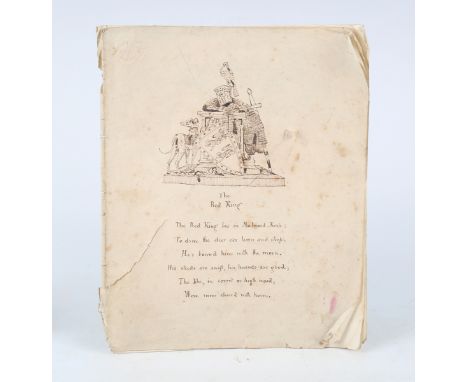 The
Red King
The Red King lies in Malwood-Keep;
To drive the deer o'er lawn and steep,
He's bouned him with the morn.
His steeds are swift, his hounds are good;
The like, in covert or high wood,
Were never cheered with horn.